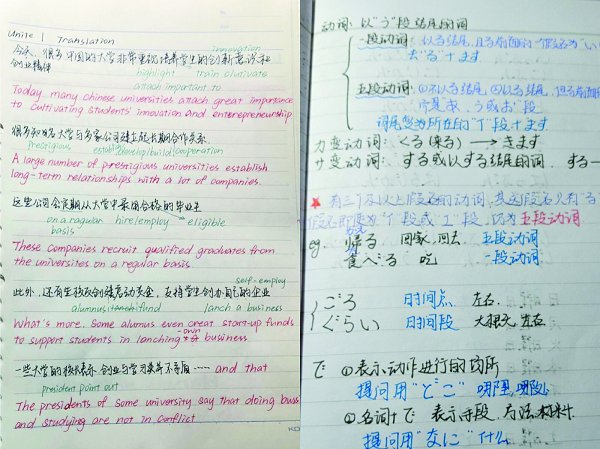 Unite 1 Translation
今天，很多中国的大学非常重视培养学生的创新意识和
innovation
创业精神
highlight train clutivate
attach important to
Today many chinese universities attach great importance
to cultivating students' innovation and enterepreneurship
很多知名大学与多家公司建立起长期合作关系
prestigious establish develop build cooperation
A large number of prestigious universities establish
long-term relationships with a lot of companies.
这些公司会定期从大学中录用合格的毕业生
on a ragular hire/employ eligible
basis
These companies recruit qualified graduates from
the universites on a regular basis.
self-employ
此外，还有些校友创建启动资金，支持学生创办自己的企业
alumnus fund lanch a business
What's more, Some alumus even creat start-up funds
to support students in lanching own business
一些大学的校长表示，创业与学习并不矛盾 …… and that
president point out
The presidents of Some university say that doing buss
and studying are not in Conflict
动词：以"う"段结尾的词
一段动词：以る结尾，且る前面的一假名为"い
去"る"+ます
五段动词：①不以る结尾，②以る结尾，但る前面的
词尾变为所在的"い"段+ます
カ变动词：くる(来る) → きます
サ变动词：する或以する结尾的词.する—
★ 有三个及以上假名的动词，
五段动词
eg. 帰る 回家，回去 五段动词
食べる 吃 一段动词
ごろ 时间点 左右.
ぐらい 时间段 大概，左右
で ①表示动作进行的场所
提问用"どこ" 哪里，哪儿
②名词+で 表示手段、方法、材料.
提问用"なに" 什么